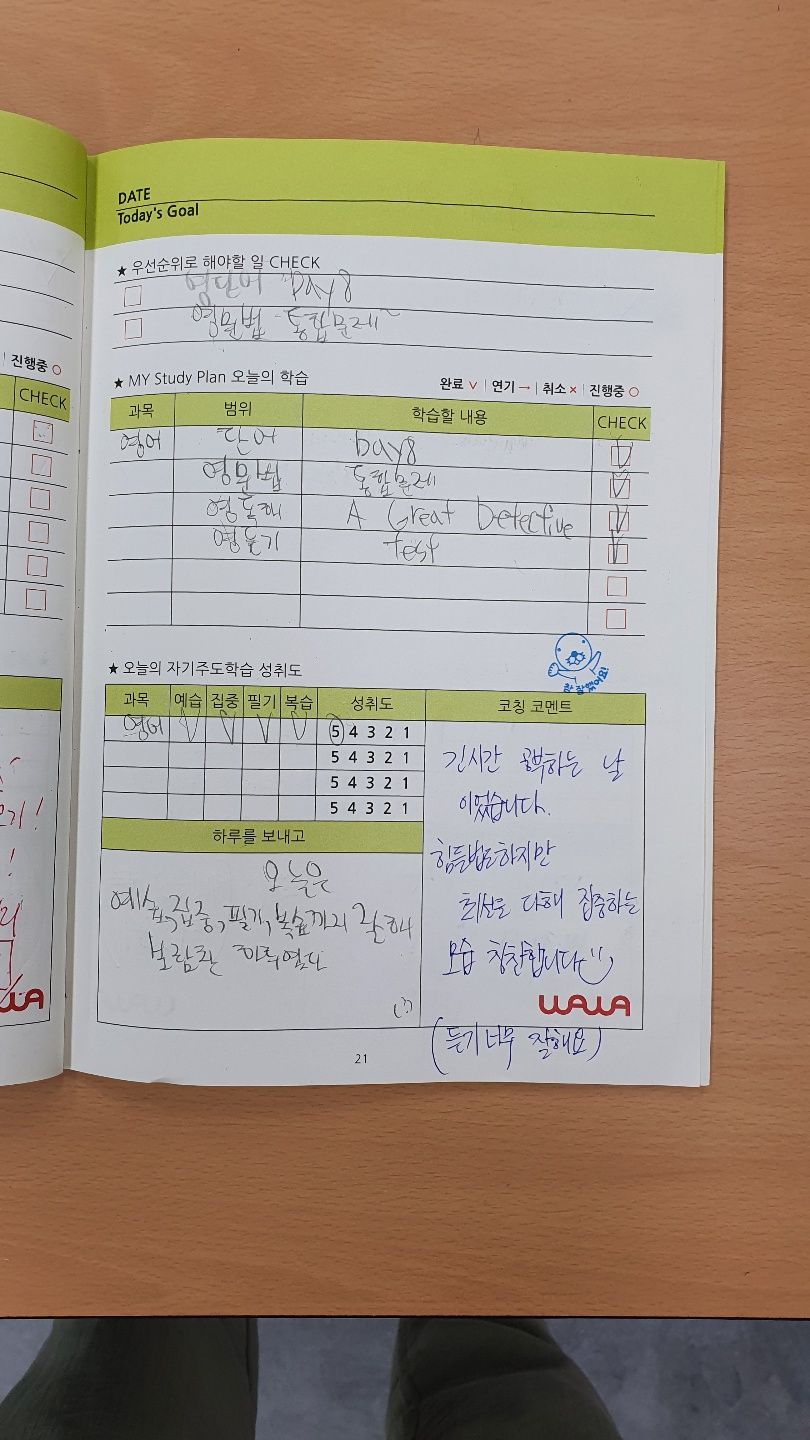 DATE
Today's Goal
★ 우선순위로 해야할 일 CHECK
영단어 Day8
영문법 통합문제
진행중 ○
CHECK
★ MY Study Plan 오늘의 학습
완료 ∨ | 연기 → | 취소 × | 진행중 ○
과목 범위 학습할 내용 CHECK
영어 단어 Day8
영문법 통합문제
영독해 A Great Detective
영듣기 test
★ 오늘의 자기주도학습 성취도
참 잘했어요!
과목 예습 집중 필기 복습 성취도 코칭 코멘트
영어 V V V V 5 4 3 2 1
5 4 3 2 1
5 4 3 2 1
5 4 3 2 1
하루를 보내고
오늘은
예습,집중,필기,복습까지 잘해
보람찬 하루였다
긴시간 공부하는 날
이었습니다.
힘들법도하지만
최선을 다해 집중하는
모습 칭찬합니다
WAWA
(듣기 너무 잘해요)
21